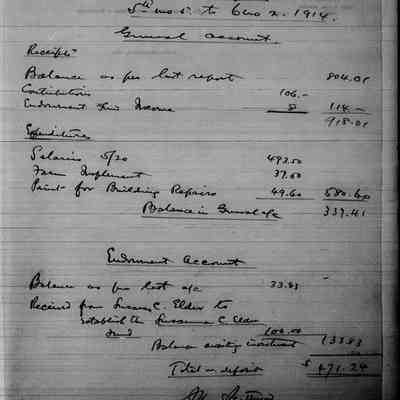 5th mo 5. to 6 mo 2. 1914.
General Account.
Receipts
Balance as per last report 804.01
Contributions 106.-
Endowment Income 8 114.-
918.01
Expenditures
Salaries 5/20 493.50
Farm Implement 37.50
Paint for Building Repairs 49.60 580.60
Balance in General a/c 337.41
Endowment Account
Balance as per last a/c 33.83
Received from Susanna C. Elder to
Establish the Susanna C. Elder
Fund 100.00
Balance awaiting investment 133.83
Total on deposit $ 471.24